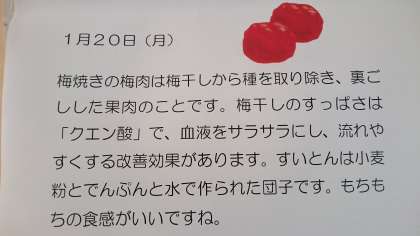 1月20日（月）
梅焼きの梅肉は梅干しから種を取り除き、裏ご
しした果肉のことです。梅干しのすっぱさは
「クエン酸」で、血液をサラサラにし、流れや
すくする改善効果があります。すいとんは小麦
粉とでんぷんと水で作られた団子です。もちも
ちの食感がいいですね。